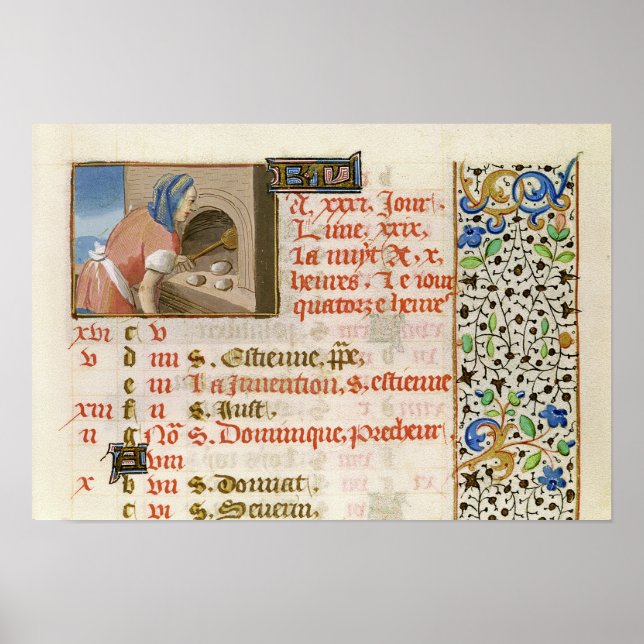 A xxxi. Jour.
Lune. xxix.
la nuyt A. x.
heures. Le iour
quatorze heures
xvi c v
v d iiii s. Estienne, ppe.
e iii La Invention, s. estienne
xiii f ii s. Just.
ii g No s. Dominique, precheur
A viii
x b vii s. Donnat.
c vi s. Severin.